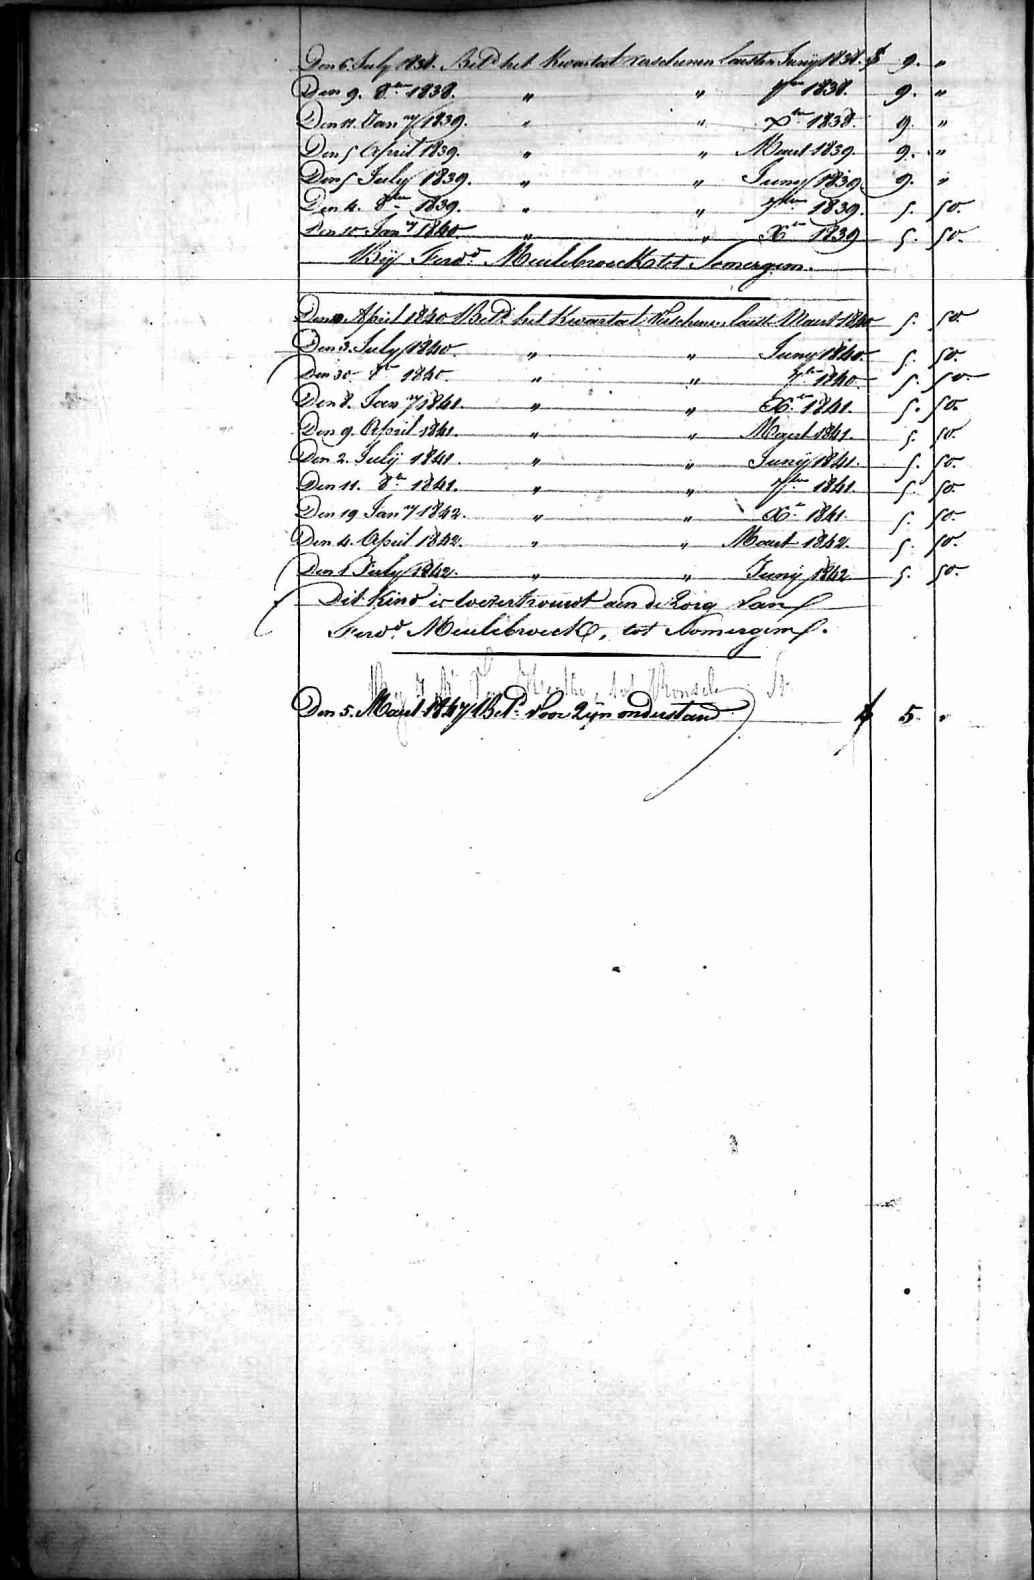 Den 6. July 1838. Betd het Kwartaal verschenen laasten Junij 1838. f 9. "
Den 9. 8bre 1838. " " 7bre 1838. 9. "
Den 11. Jany 1839. " " Xbre 1838. 9. "
Den 5 April 1839. " " Maart 1839. 9. "
Den 5 July 1839. " " Juny 1839. 9. "
Den 4. 8bre 1839. " " 7bre 1839. 5. 50.
Den 10 Jany 1840 " " Xbre 1839 5. 50.
Bij Ferd. Meulebroeck tot Somergem.
April 1840 Betd het Kwartaal Verschenen laast. Maart 1840 5. 50
Den 3. July 1840. " " Juny 1840. 5. 50.
Den 30. 8re 1840. " " 7bre 1840. 5. 50.
Den 8. Jany 1841. " " Xbre 1841. 5. 50.
Den 9. April 1841. " " Maart 1841. 5. 50.
Den 2. Julij 1841. " " Junij 1841. 5. 50.
Den 11. 8re 1841. " " 7bre 1841. 5. 50.
Den 19 Jany 1842. " " Xre 1841. 5. 50.
Den 4. April 1842. " " Maart 1842. 5. 50.
Den 1 July 1842. " " Junij 1842 5. 50.
Dit Kind is toevertrouwt aen de Zorg van
Ferdd. Meulebroeck, tot Somergem.
Den 5. Maart 1847 Betd. voor Zijn onderstand f 5. "